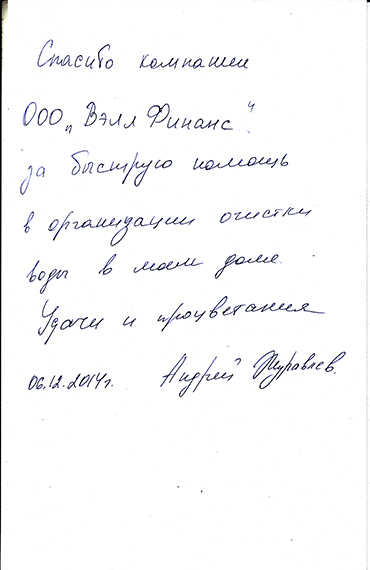 Спасибо компании
ООО „Вэлл Финанс“.
за быструю помощь
в организации очистки
воды в моем доме.
Удачи и процветания
06.12.2014г. Андрей Журавлев.